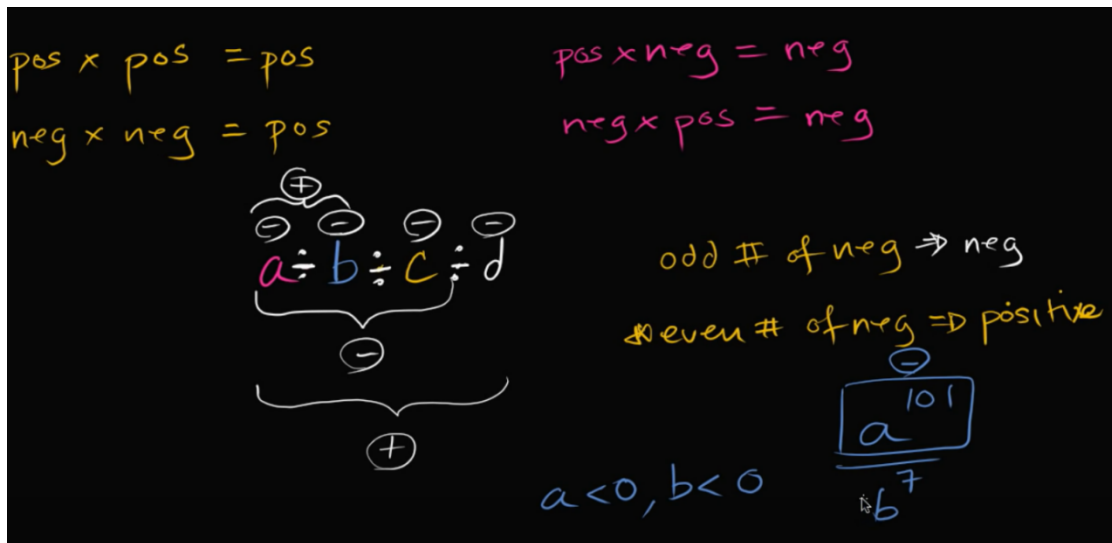 pos x pos = pos
neg x neg = pos
pos x neg = neg
neg x pos = neg
+
- - - -
a ÷ b ÷ c ÷ d
-
+
odd # of neg ⇒ neg
even # of neg ⇒ positive
-
a^101
b^7
a<0, b<0